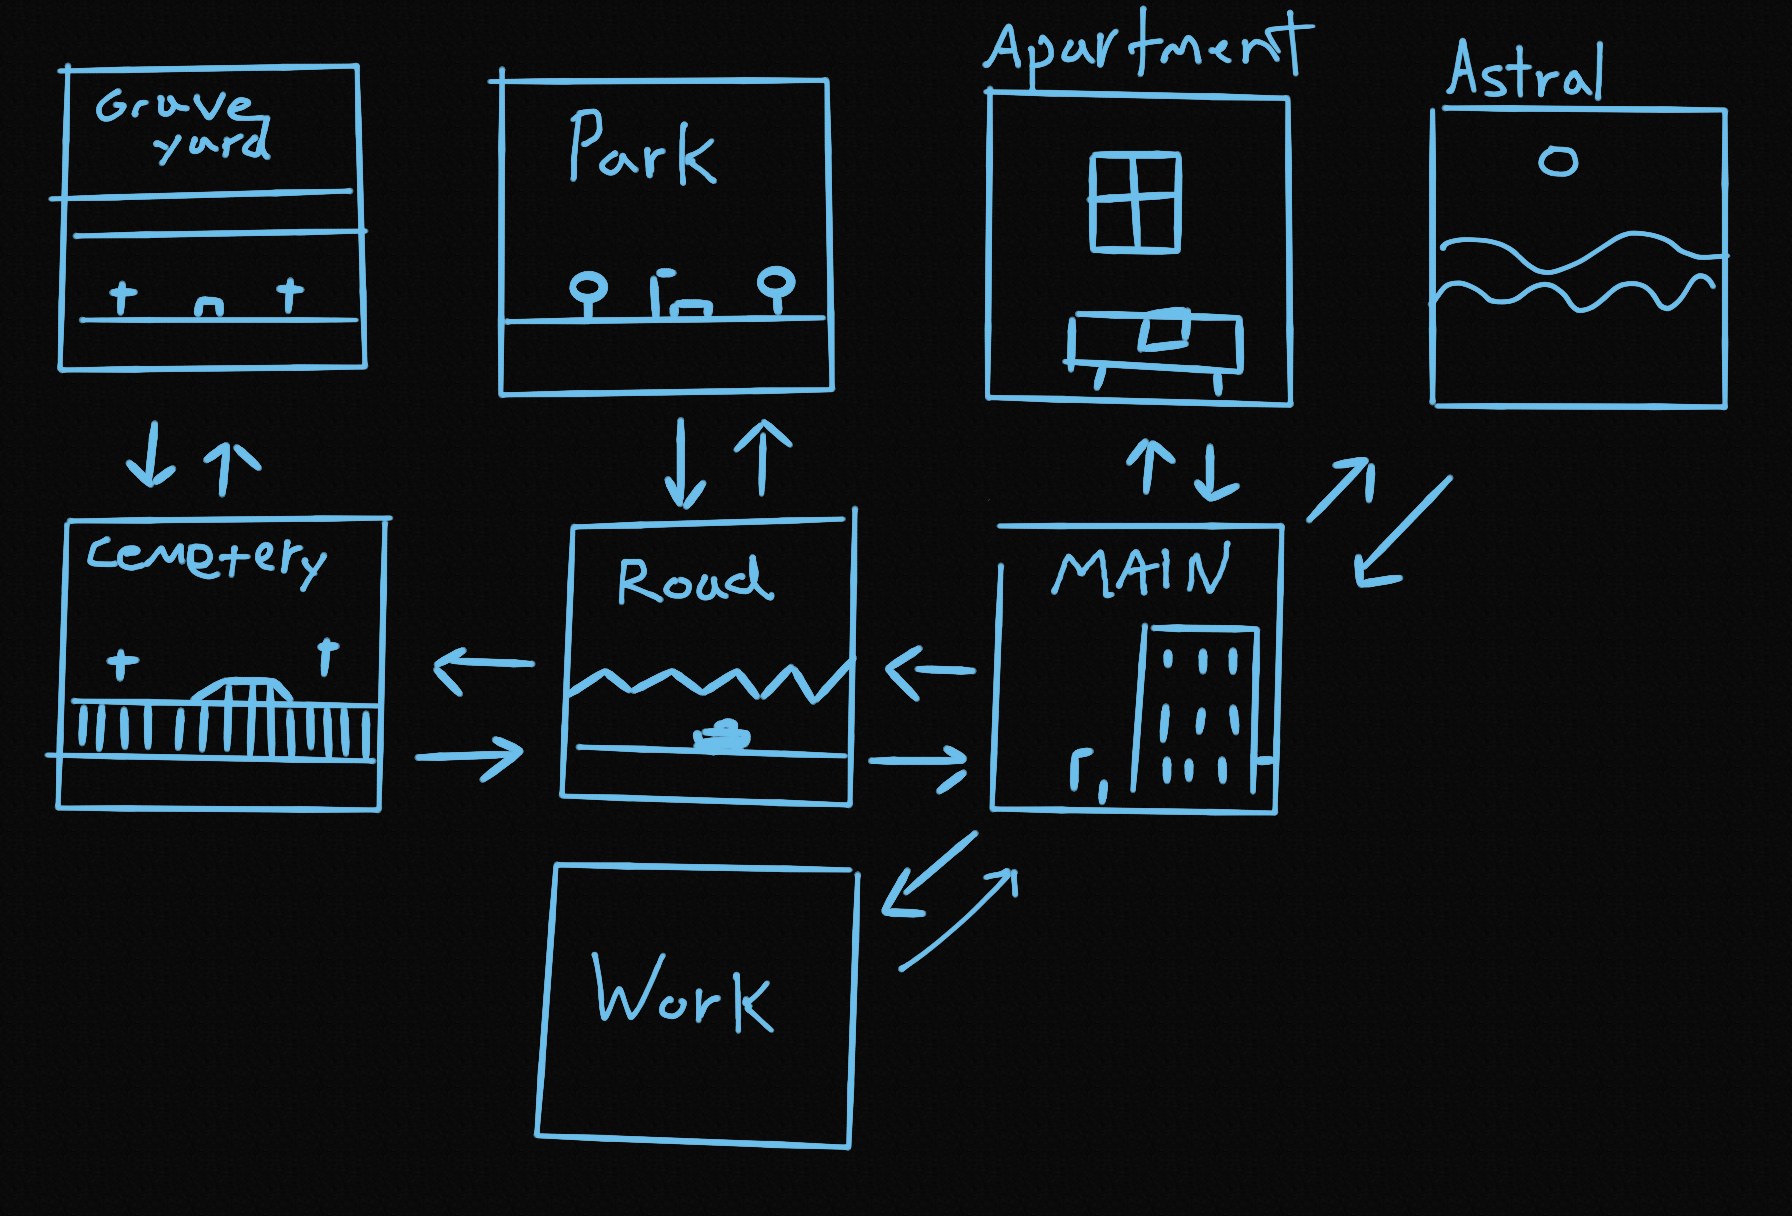 Grave
yard
Park
Apartment
Astral
Cemetery
Road
MAIN
Work